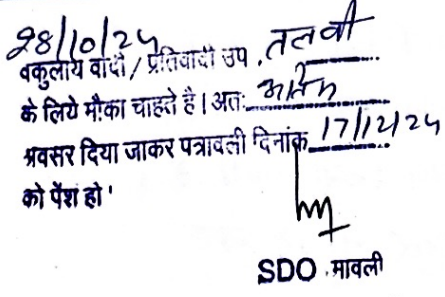 28/10/24
वकुलाय वादी / प्रतिवादी उप. तलवी
के लिये मौका चाहते है। अतः अंतिम
अवसर दिया जाकर पत्रावली दिनांक 17/12/24
को पेश हो'
SDO मावली